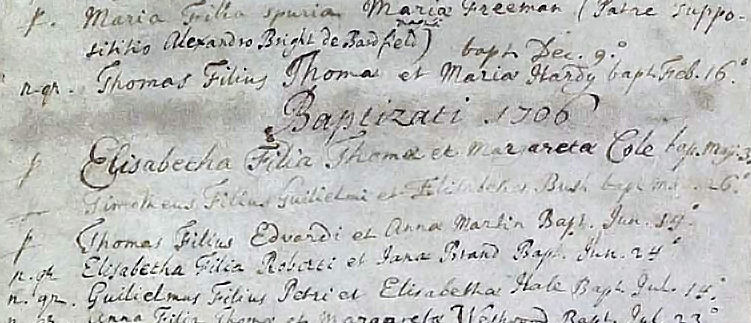 p. Maria Filia spuria Mariæ Freeman (Patre suppo-
sititio Alexandro Bright de Bardfield) bapt. Dec. 9.º
n.gr. Thomas Filius Thomæ et Maria Hardy bapt. Feb. 16.º
Baptizati 1706
p Elisabetha Filia Thomæ et Margareta Cole bap. Maji 3
Timotheus Filius Guilielmi et Elisabetha Bush bapt. 26.º
p Thomas Filius Edvardi et Anna Martin Bapt. Jun. 14.º
n. gr Elisabetha Filia Roberti et Jana Brand Bapt. Jun. 24.º
n. gr. Guilielmus Filius Petri et Elisabetha Hale Bapt. Jul. 14.º
n. gr. Anna Filia Thomæ et Margareta Bapt. Jul. 23.º